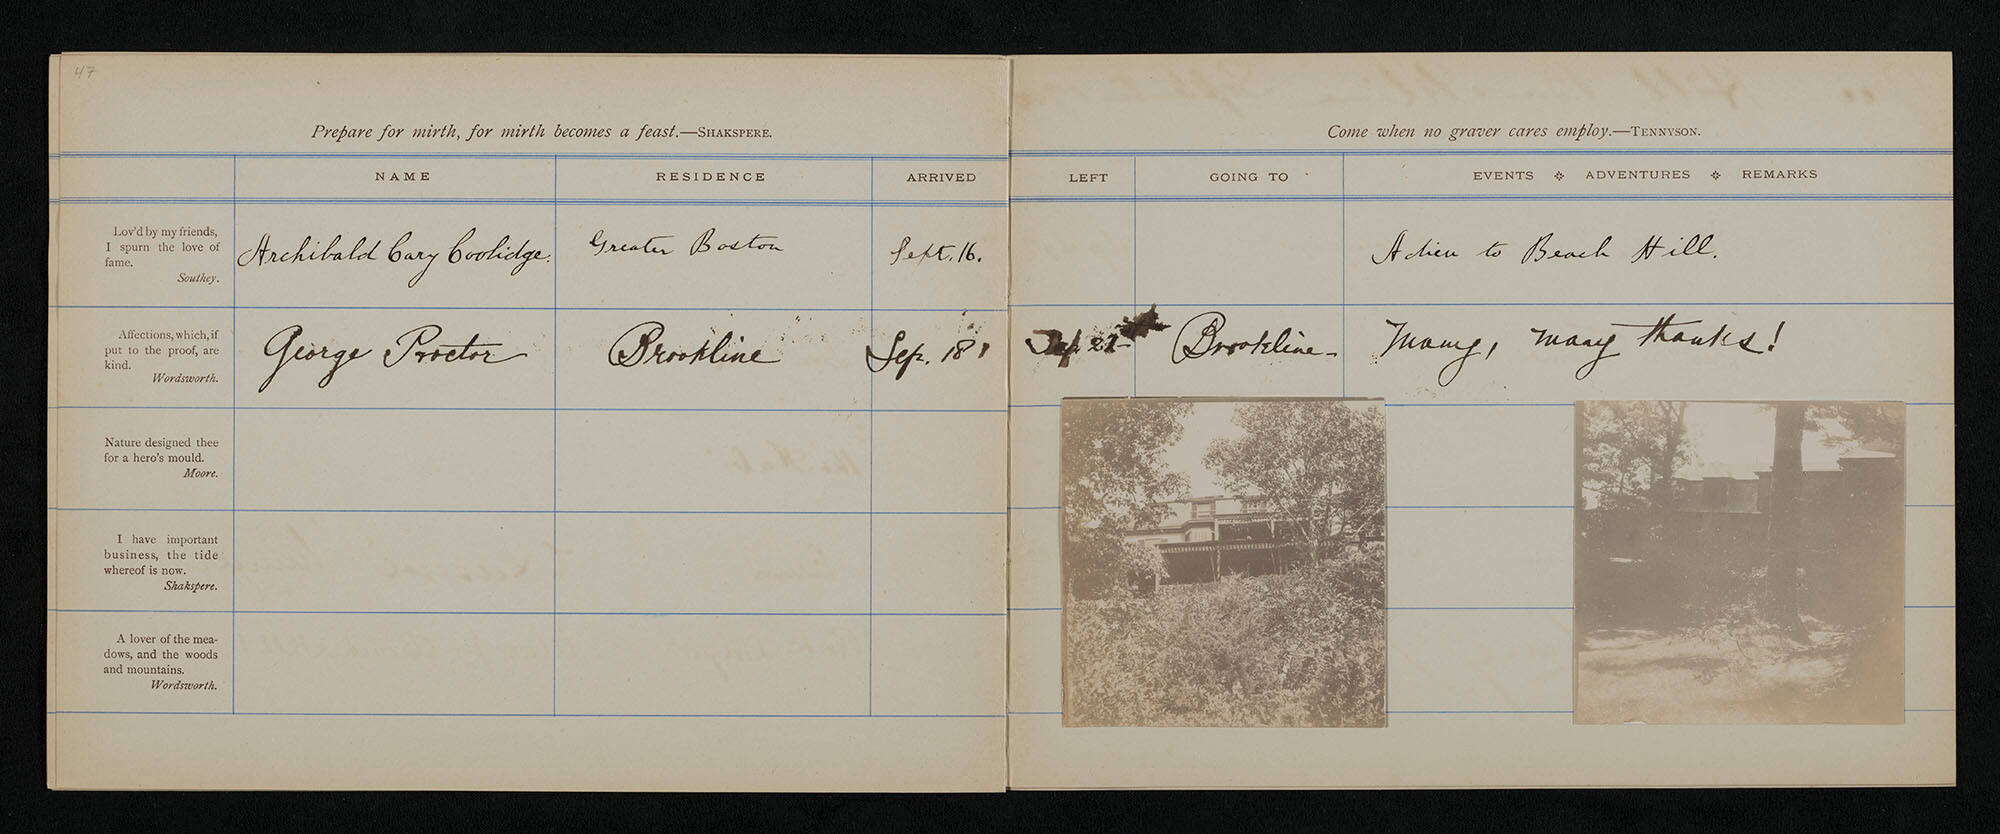 47
Prepare for mirth, for mirth becomes a feast.—SHAKSPERE.
Come when no graver cares employ.—TENNYSON.
NAME RESIDENCE ARRIVED LEFT GOING TO EVENTS ADVENTURES REMARKS
Lov'd by my friends,
I spurn the love of
fame.
Southey.
Archibald Cary Coolidge. Greater Boston Sept. 16. Adieu to Beach Hill.
Affections, which, if
put to the proof, are
kind.
Wordsworth.
George Proctor Brookline Sep. 18 Sep. 21- Brookline- Many, many thanks!
Nature designed thee
for a hero's mould.
Moore.
I have important
business, the tide
whereof is now.
Shakspere.
A lover of the mea-
dows, and the woods
and mountains.
Wordsworth.